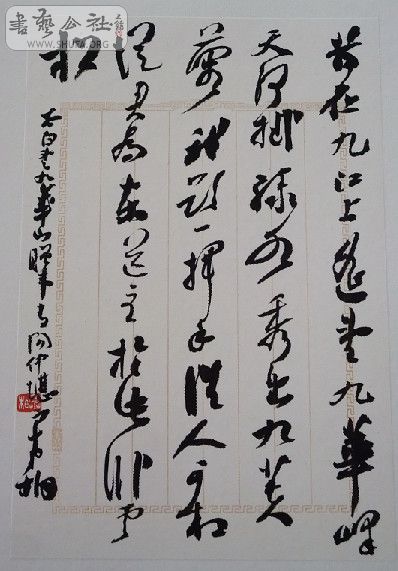 書藝公社
SHUFA.ORG
昔在九江上遥望九華峰
天河掛緑水秀出九芙
蓉我欲一揮手誰人可相
從君為東道主於此卧雲
松
太白望九華山贈仲堪